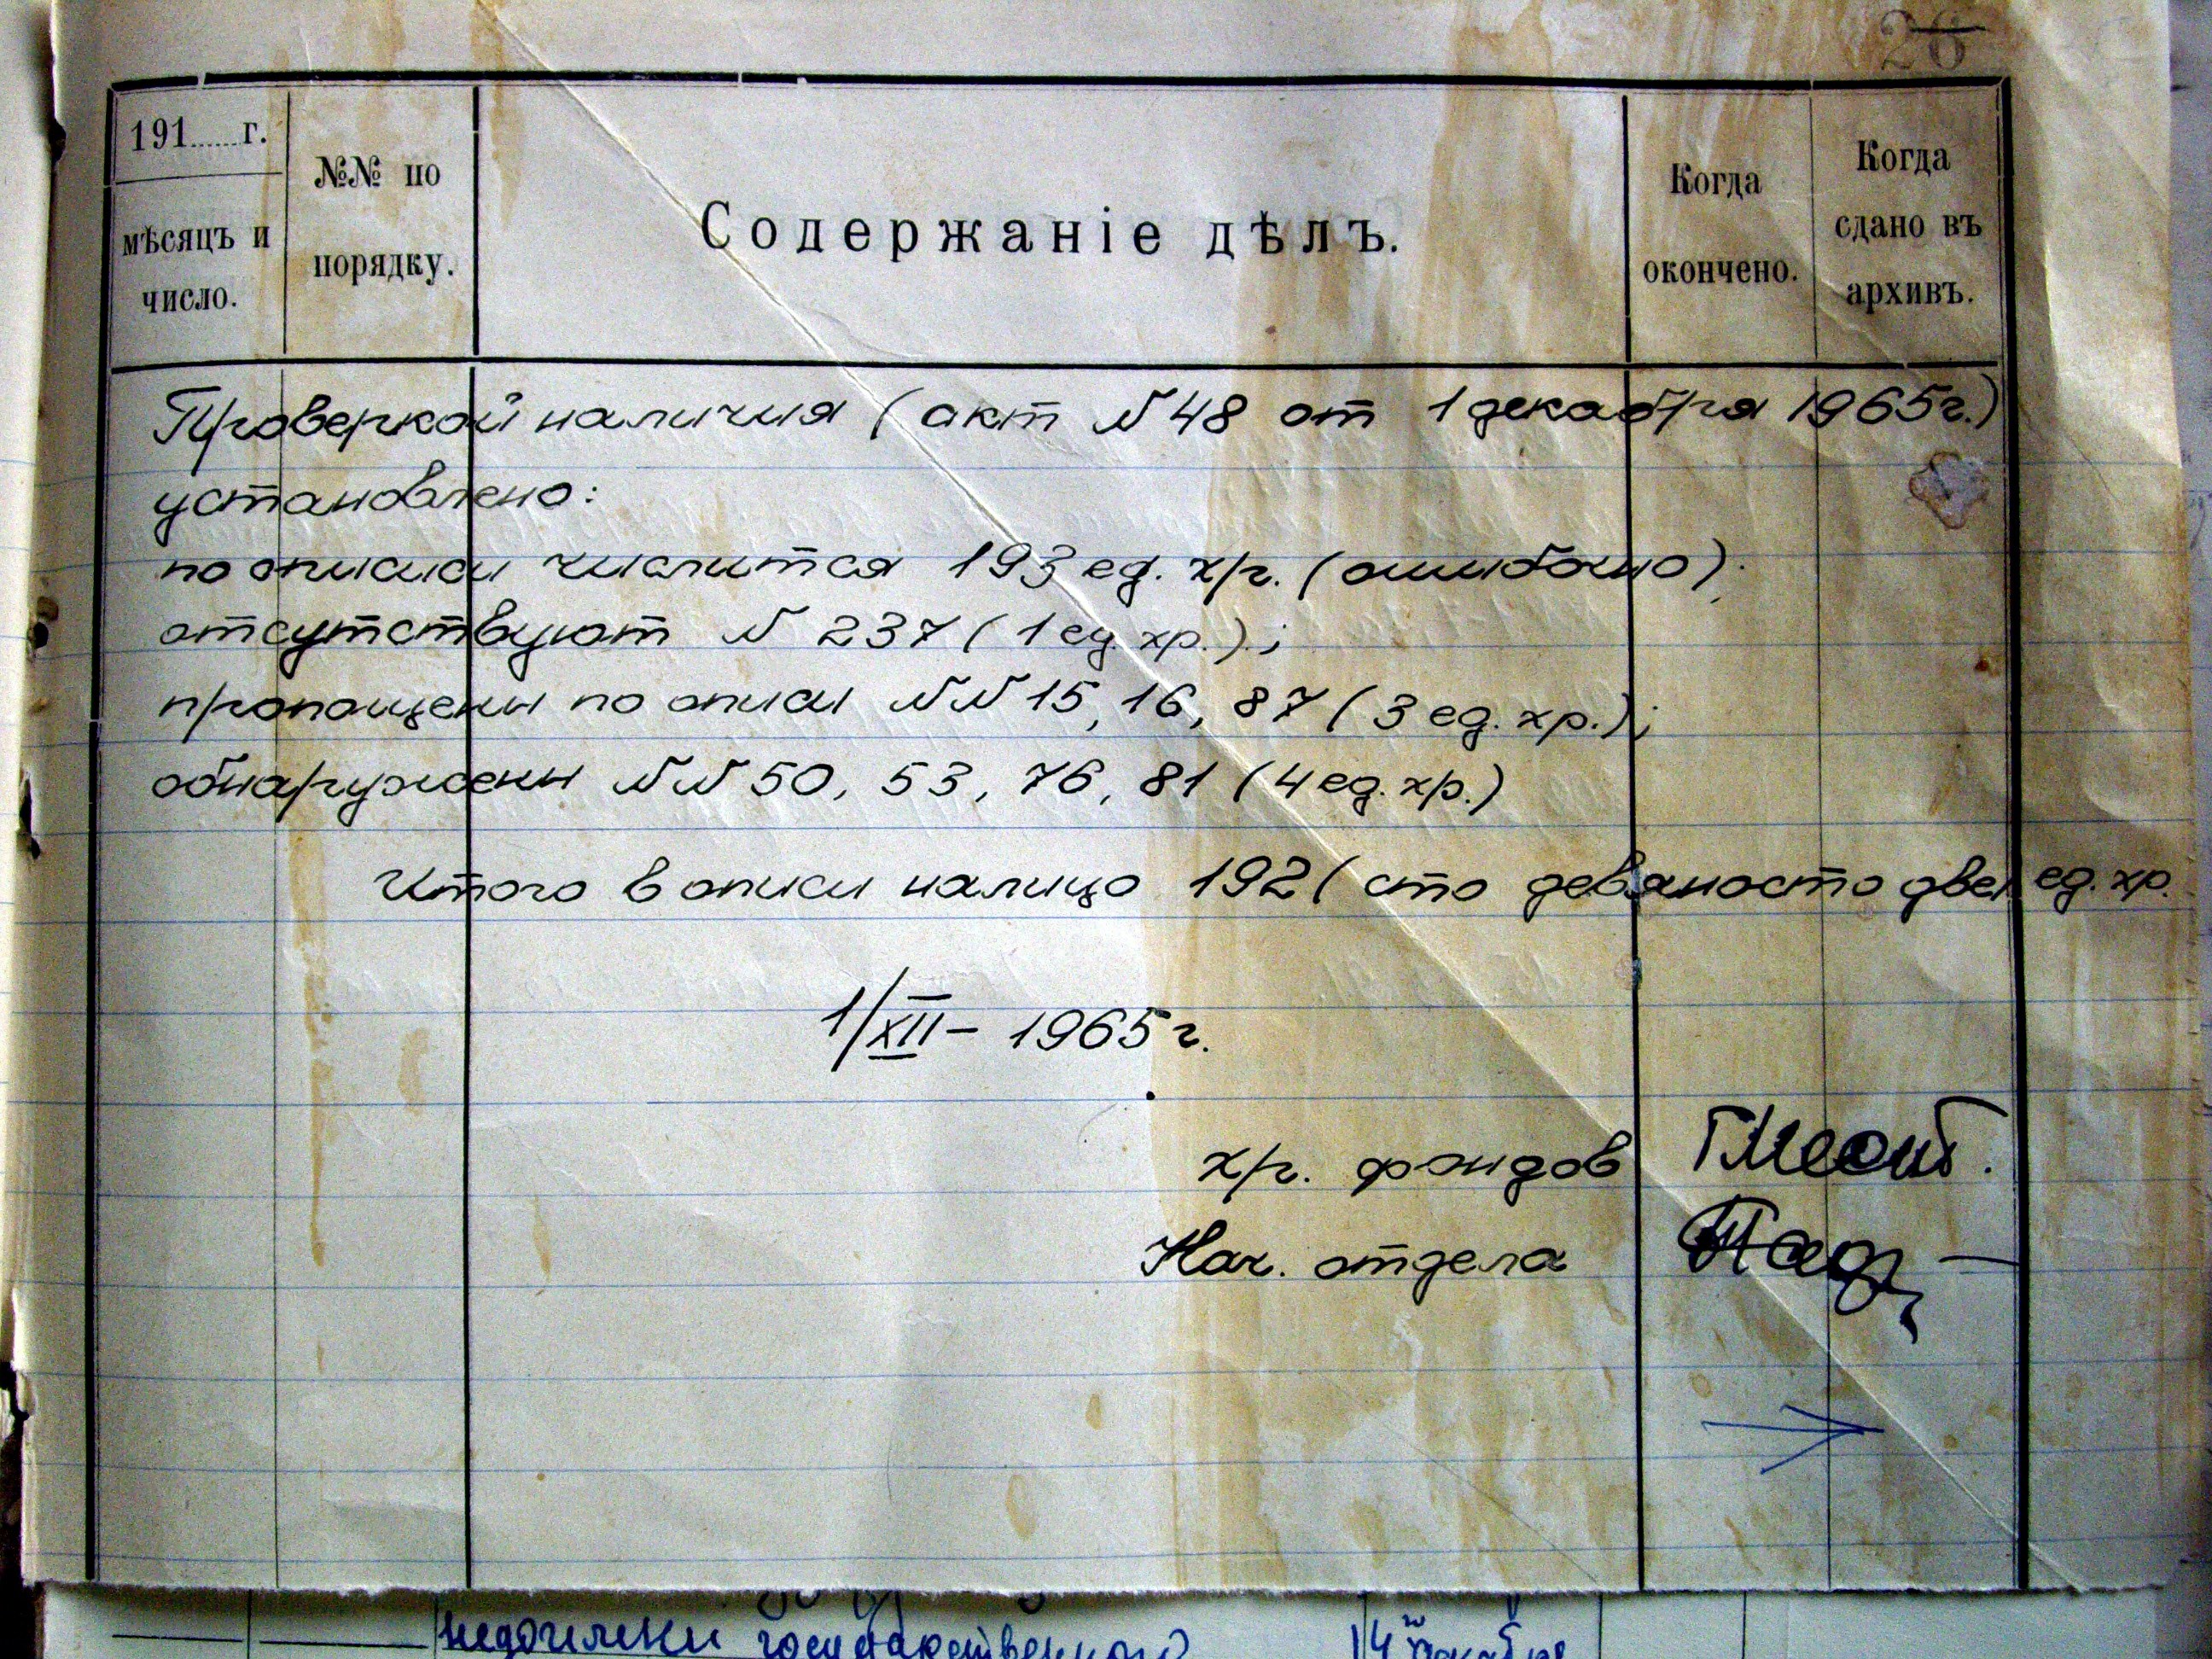 26
191......г.
мѣсяцъ и
число.
№№ по
порядку.
Содержаніе дѣлъ.
Когда
окончено.
Когда
сдано въ
архивъ.
Проверкой наличия (акт N 48 от 1 декабря 1965г.)
установлено:
по описи числится 193 ед. хр. (ошибочно);
отсутствуют N 237 (1 ед. хр.);
пропощены по описи NN 15, 16, 87 (3 ед. хр.);
обнаружены NN 50, 53, 76, 81 (4 ед. хр.)
Итого в описи налицо 192 (сто девяносто две) ед. хр.
1/XII - 1965 г.
хр. фондов
Нач. отдела
недоимки государственного 14 декабря